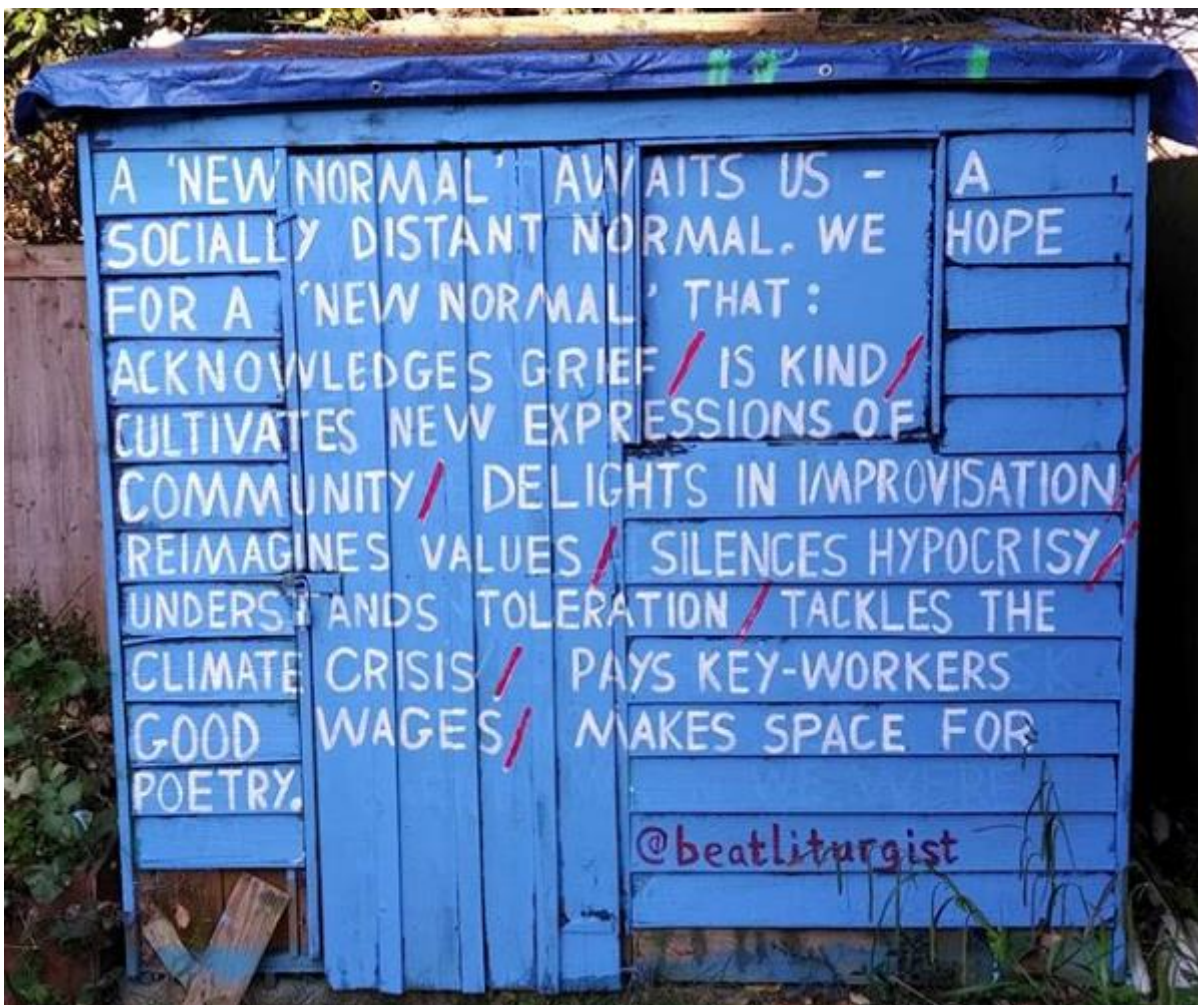 A 'NEW NORMAL' AWAITS US - A
SOCIALLY DISTANT NORMAL. WE HOPE
FOR A 'NEW NORMAL' THAT :
ACKNOWLEDGES GRIEF / IS KIND /
CULTIVATES NEW EXPRESSIONS OF
COMMUNITY / DELIGHTS IN IMPROVISATION /
REIMAGINES VALUES / SILENCES HYPOCRISY /
UNDERSTANDS TOLERATION / TACKLES THE
CLIMATE CRISIS / PAYS KEY-WORKERS
GOOD WAGES / MAKES SPACE FOR
POETRY.
@beatliturgist